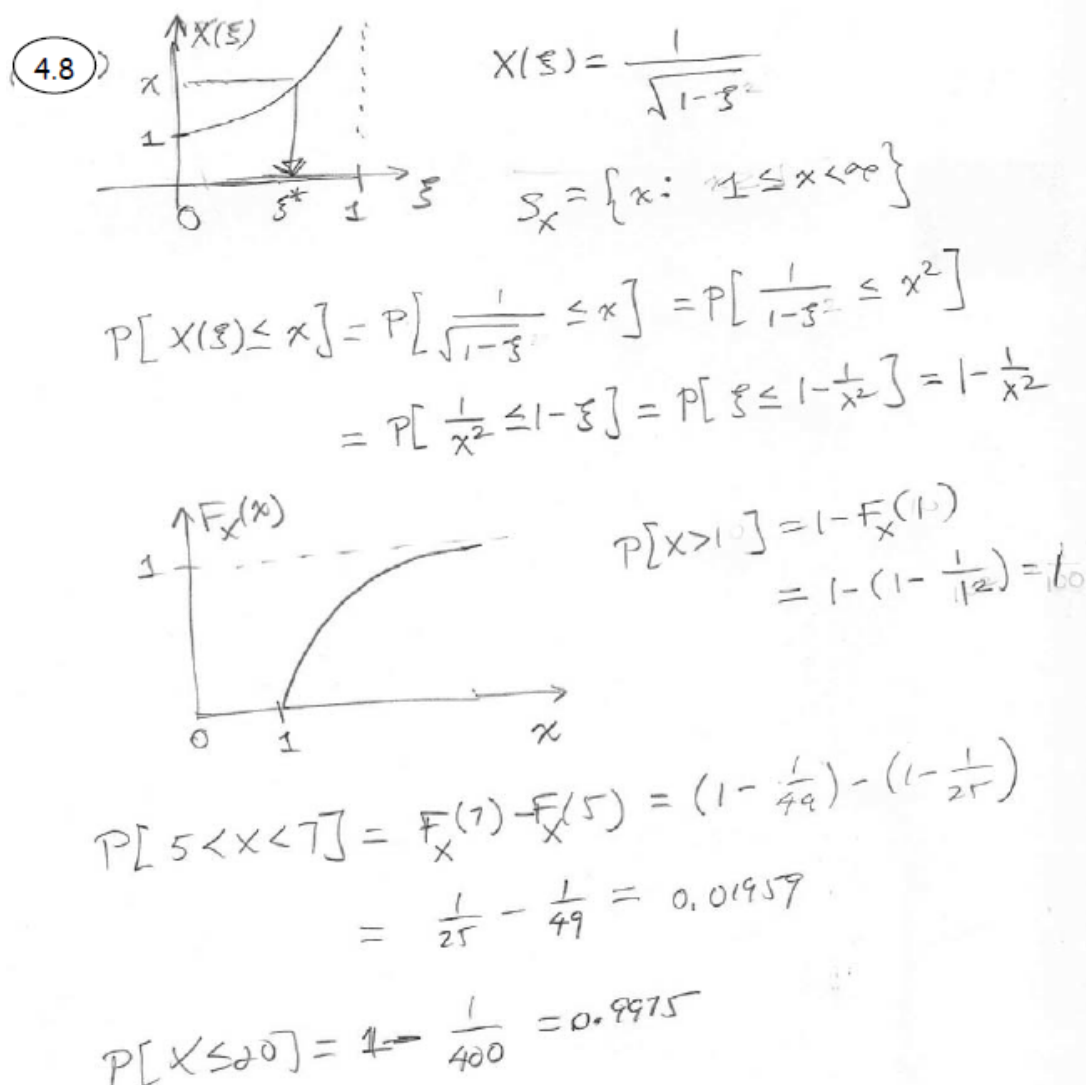 4.8
X(ξ)
x
1
0 ξ* 1 ξ
X(ξ) = 1/√(1-ξ)
S_X = {x: 1 ≤ x < ∞}
P[X(ξ) ≤ x] = P[1/√(1-ξ) ≤ x] = P[1/(1-ξ) ≤ x²]
= P[1/x² ≤ 1-ξ] = P[ξ ≤ 1-1/x²] = 1-1/x²
F_X(x)
1
0 1 x
P[X>1] = 1-F_X(1)
= 1-(1-1/1²) = 1
P[5<X<7] = F_X(7)-F_X(5) = (1-1/49)-(1-1/25)
= 1/25 - 1/49 = 0.01959
P[X≤20] = 1-1/400 = 0.9975